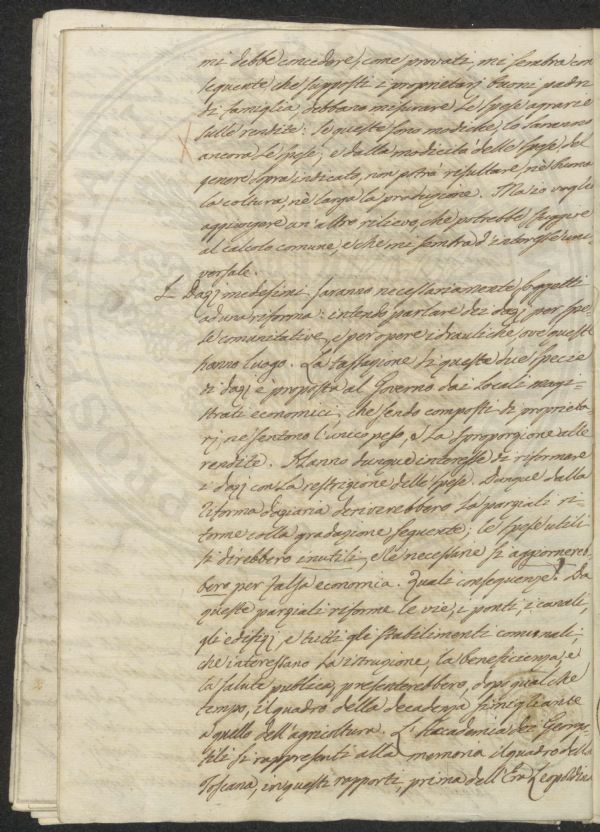 mi debbe concedere, come privati, mi sembra con
seguente, che supposti i proprietarj buoni padri
di famiglia, debbano misurare le spese agrarie
sulle rendite. Se queste sono modiche, lo saranno
ancora le spese, e dalla modicità delle spese del
genere sopra indicato, non potrà resultare, nè buona
la coltura, nè larga la produzione. Ma io voglio
aggiungere un' altro rilievo, che potrebbe sfuggire
al calcolo comune, e che mi sembra d' interesse uni
versale.
I Dazj medesimi saranno necessariamente soggetti
ad una riforma: intendo parlare dei dazj per spe=
se comunitative, e per opere idrauliche, ove queste
hanno luogo. La tassazione di queste due specie
di dazj è proposta al Governo dai locali magi=
strati economici, che sendo composti di proprieta=
rj, ne sentono l' unico peso, e la sproporzione alle
rendite. Hanno dunque interesse di riformare
i dazj con la restrizione delle spese. Dunque dalla
riforma daziaria deriverebbero le parziali ri=
forme colla gradazione seguente; le spese utili
si direbbero inutili, e le necessarie si aggiornereb=
bero per falsa economia. Quali conseguenze! Da
queste parziali riforme le vie, i ponti, i canali,
gli edifizj, e tutti gli stabilimenti comunali,
che interessano la istruzione, la beneficienza, e
la salute pubblica, presenterebbero, dopo qualche
tempo, il quadro della decadenza simigliante
a quello dell' agricoltura. L' Accademia dei Georgo
fili si rappresenti alla memoria il quadro della
Toscana, in questi rapporti, prima dell' Era Leopoldia